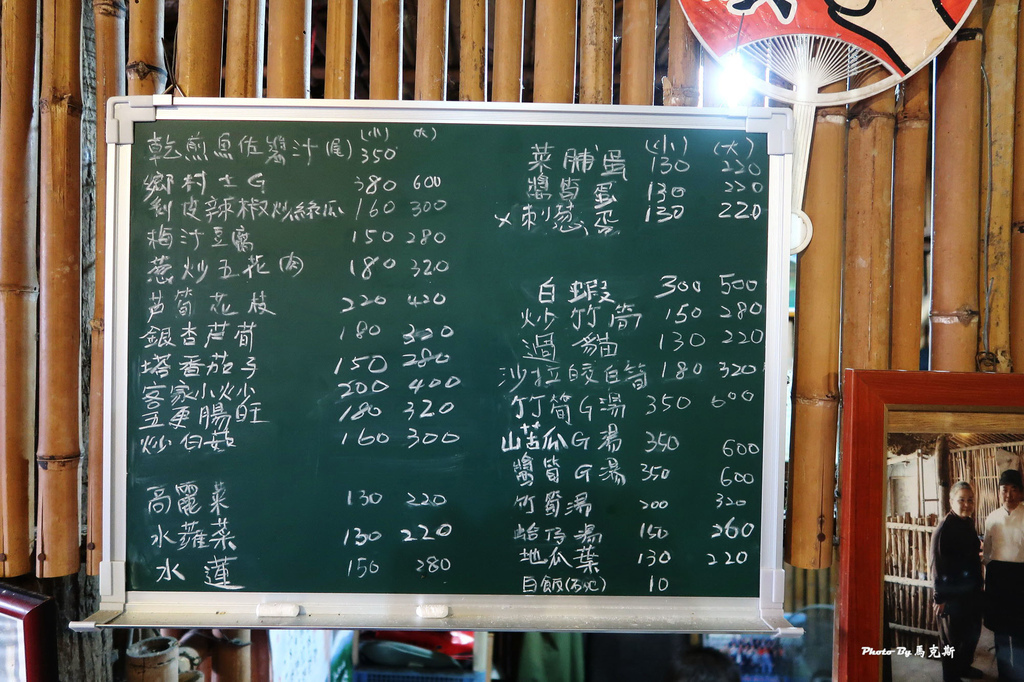 (小) (大)
乾煎魚佐醬汁(尾) 350
鄉村土G 380 600
剝皮辣椒炒絲瓜 160 300
梅汁豆腐 150 280
蔥炒五花(肉) 180 320
芦筍花枝 220 420
銀杏芦筍 180 320
塔香茄子 150 280
客家小炒 200 400
五更腸旺 180 320
炒白菇 160 300
高麗菜 130 220
水蕹菜 130 220
水蓮 150 280
(小) (大)
菜脯蛋 130 220
醬筍蛋 130 220
x刺葱蛋 130 220
白蝦 300 500
炒竹筍 150 280
過貓 130 220
沙拉皎白筍 180 320
竹筍G湯 350 600
山苦瓜G湯 350 600
醬筍G湯 350 600
竹筍湯 200 320
蛤仔湯 150 260
地瓜葉 130 220
白飯 10
Photo By 馬克斯